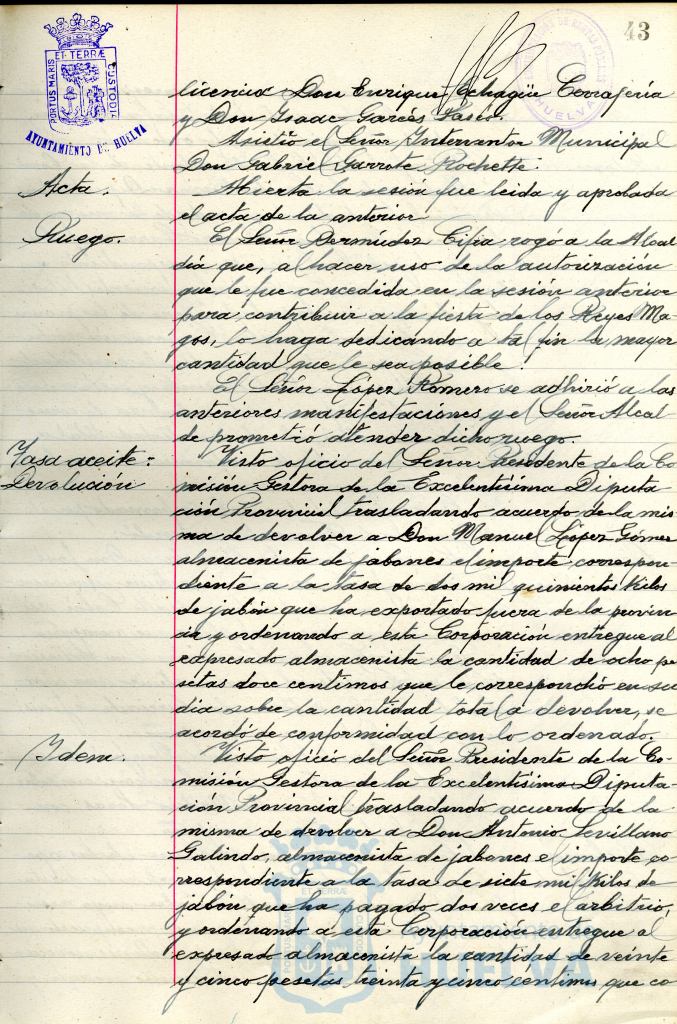 43
PORTUS MARIS ET TERRÆ CUSTODIA
AYUNTAMIENTO DE HUELVA
HUELVA
licencia Don Enrique Echagüe Cerrajería
y Don Isaac Garcés
Asistió el Señor Interventor Municipal
Don Gabriel Garrote Rochette.
Acta.
Abierta la sesión fue leida y aprobada
el acta de la anterior
Ruego.
El Señor Bermúdez Cifra rogó a la Alcal
día que, al hacer uso de la autorización
que le fue concedida en la sesión anterior
para contribuir a la fiesta de los Reyes Ma-
gos, lo haga dedicando a tal fin la mayor
cantidad que le sea posible.
El Señor López Romero se adhirió a las
anteriores manifestaciones y el Señor Alcal-
de prometió atender dicho ruego.
Tasa aceite =
Devolución
Visto oficio del Señor Presidente de la Co
misión Gestora de la Excelentísima Diputa
ción Provincial trasladando acuerdo de la mis
ma de devolver a Don Manuel López Gómez
almacenista de jabones el importe correspon-
diente a la tasa de dos mil quinientos kilos
de jabón que ha exportado fuera de la provin
cia y ordenando a esta Corporación entregue al
expresado almacenista la cantidad de ocho pe
setas doce centimos que le correspondió en su
dia sobre la cantidad total a devolver, se
acordó de conformidad con lo ordenado.
Idem.
Visto oficio del Señor Presidente de la Co-
misión Gestora de la Excelentísima Diputa-
ción Provincial trasladando acuerdo de la
misma de devolver a Don Antonio Sevillano
Galindo, almacenista de jabones el importe co-
rrespondiente a la tasa de siete mil kilos de
jabón que ha pagado dos veces el arbitrio,
y ordenando a esta Corporación entregue al
expresado almacenista la cantidad de veinte
y cinco pesetas treinta y cinco centimos que co
HUELVA